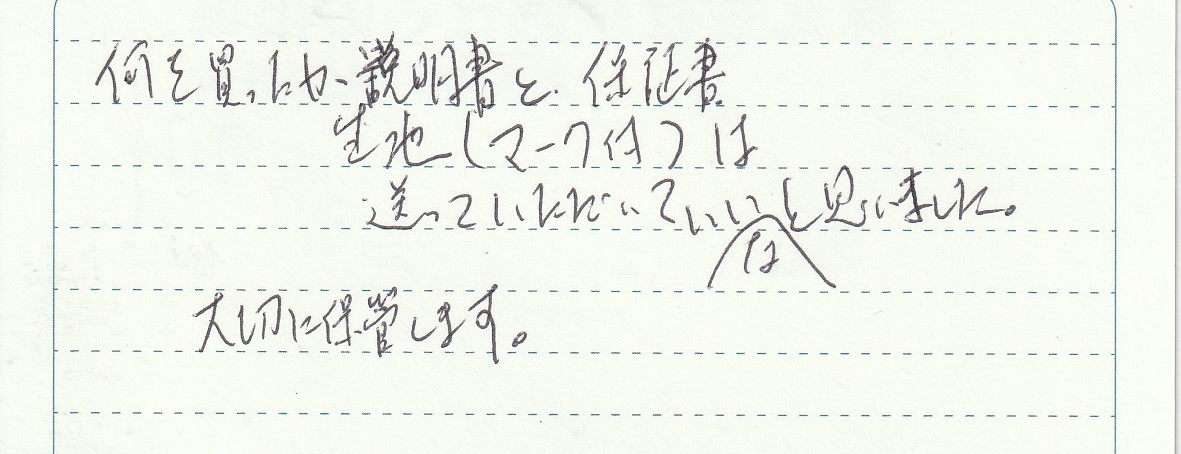 何を買ったか、説明書と、保証書
生地(マーク付)は
送っていただいていいなと思いました。
大切に保管します。